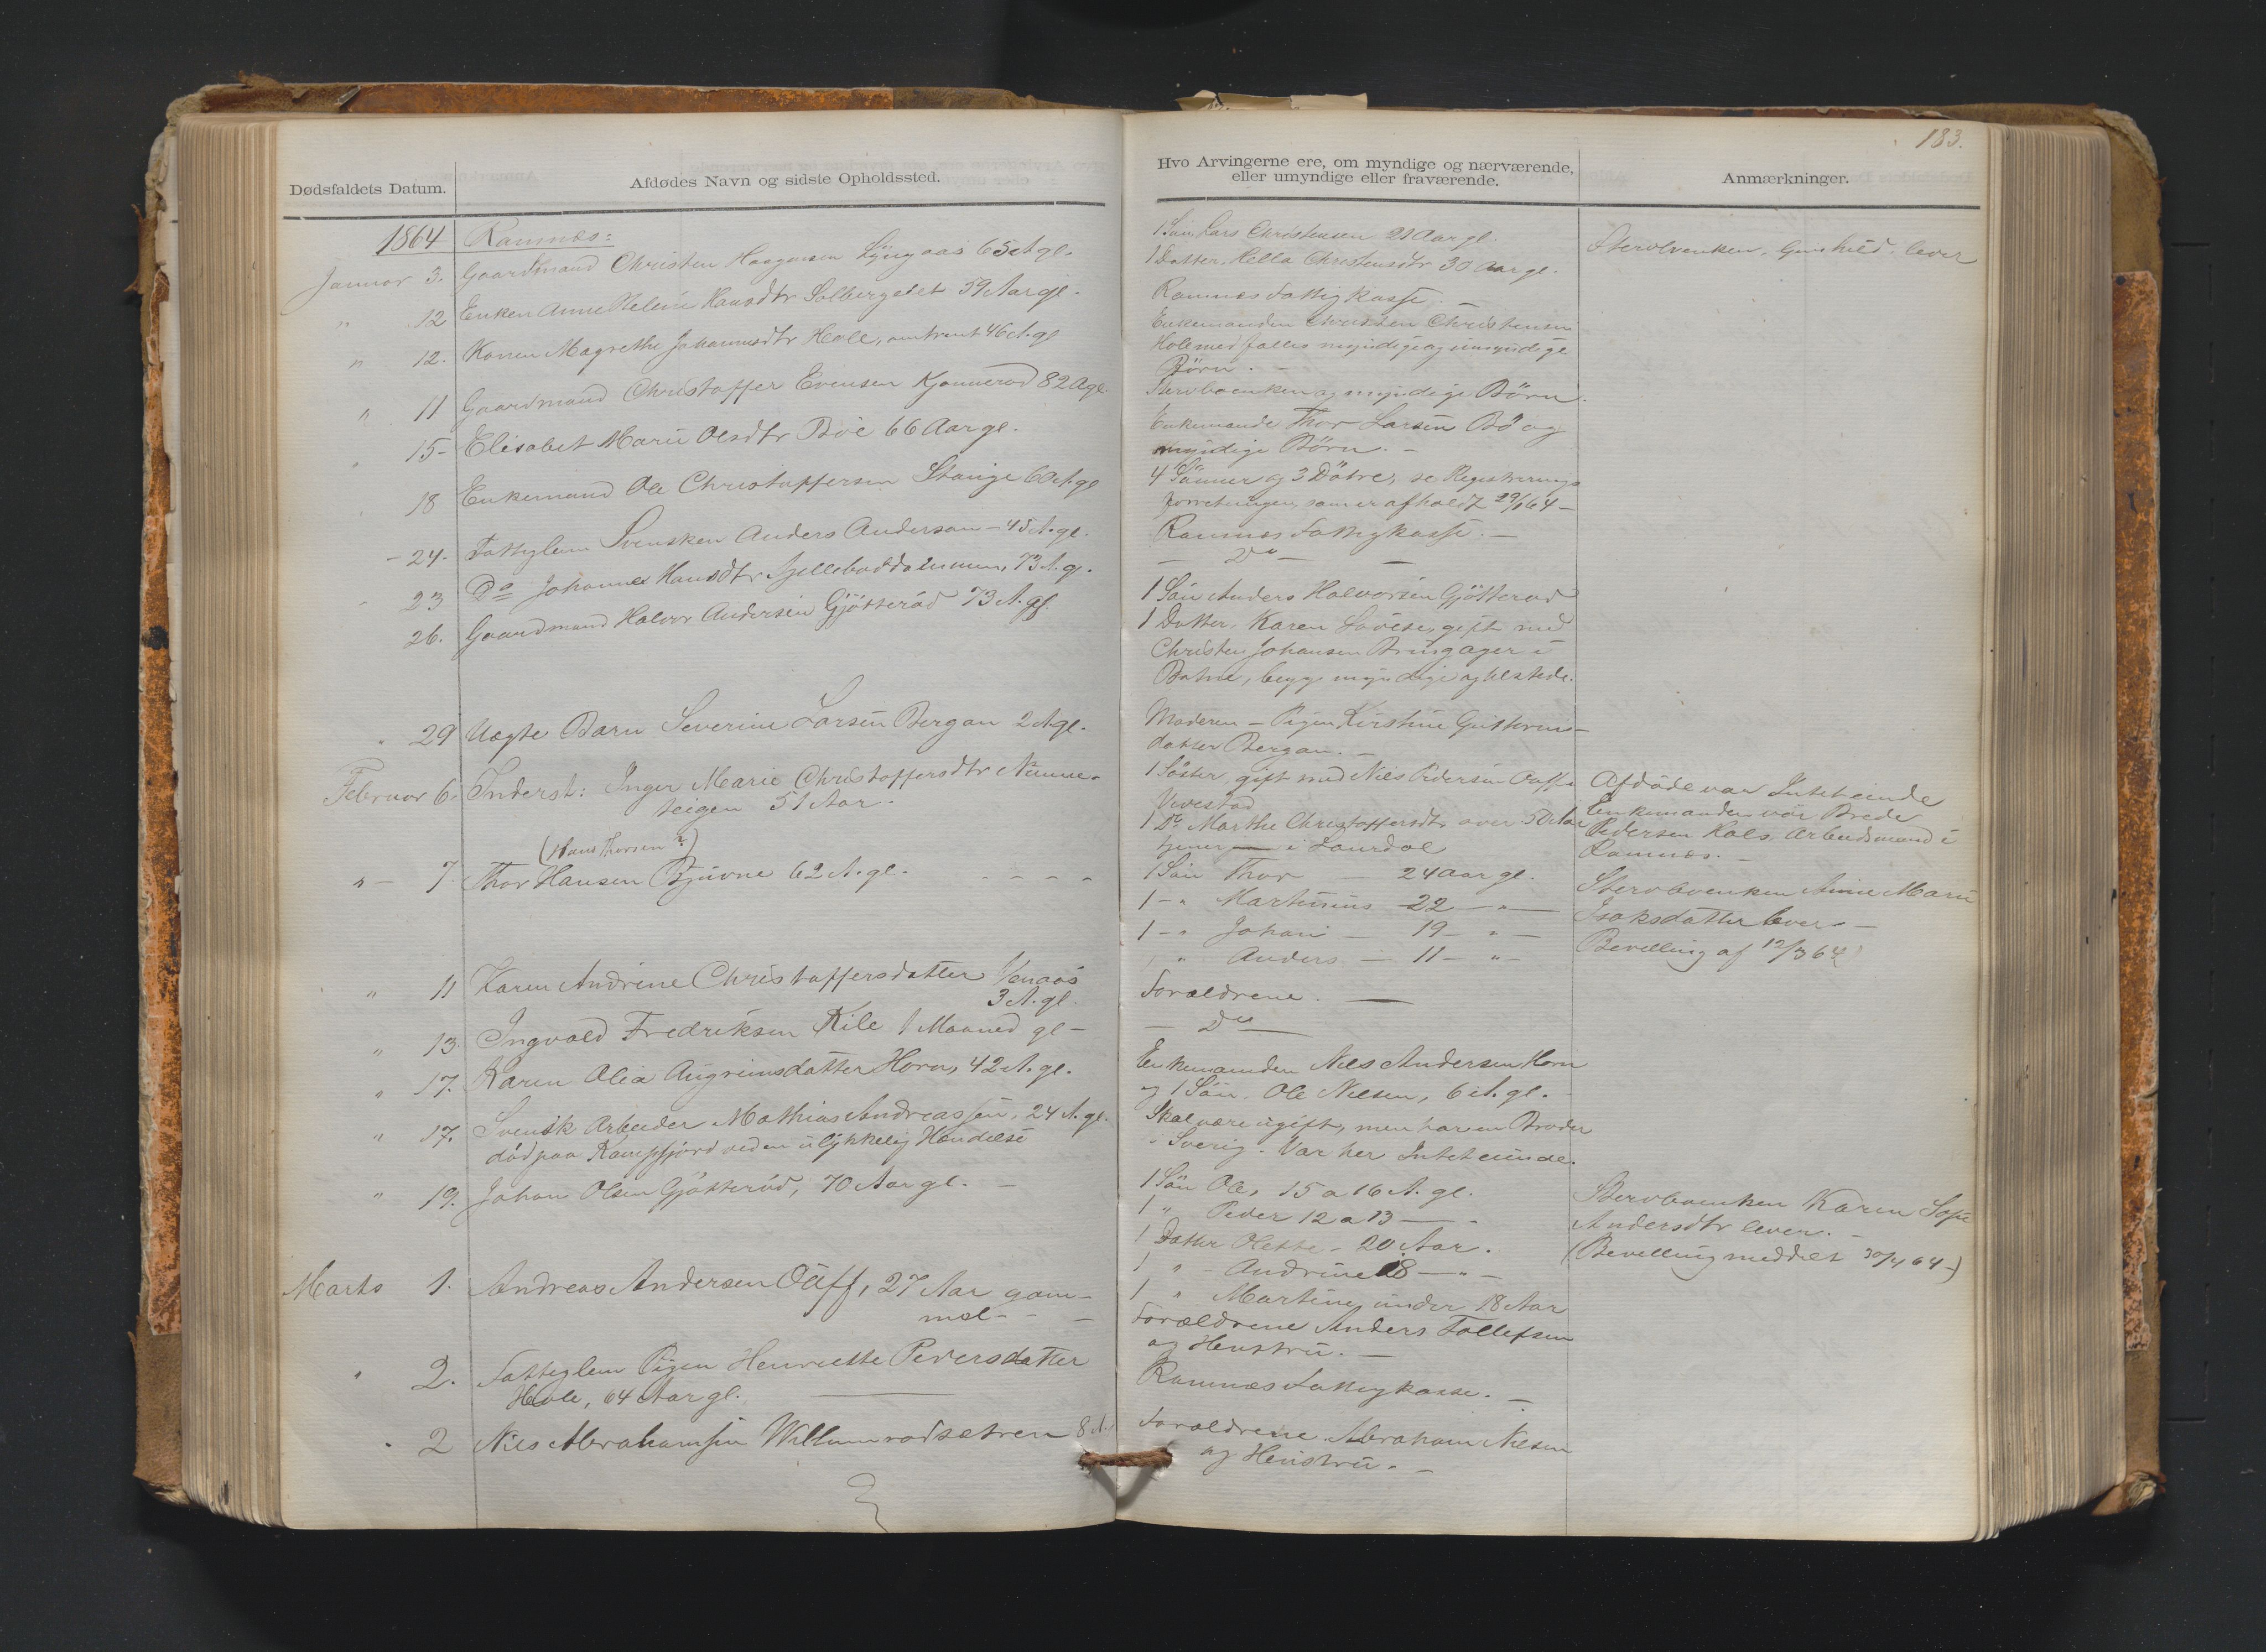 Dødsfaldets Datum.
Afdødes Navn og sidste Opholdssted.
1864 Ramnæs:
Januar 3. Gaardmand Christen Haagensen Lÿngaas 65 A gl.
" 12 Enken Anne Helene Hansdtr Solbergeiet 59 Aar gl.
" 12. Konen Magrethe Johannesdtr Hole, omtrent 46 A. gl
" 11 Gaardmand Christoffer Evensen Kjonnerød 82 A gl.
" 15- Elisabet Marie Olsdtr Böe 66 Aar gl.
18 Enkemand Ole Christoffersen Stange 60 A. gl
- 24. Fattiglem Svensken Anders Anderson - 45 A. gl.
" 23 Do Johanne Hansdtr 73 A. g.
26. Gaardmand Halvor Andersen Gjötteröd 73 A. gl.
" 29 Uægte Barn Severine Larsen Bergan 2 A gl.
Februar 6. Inderst: Inger Marie Christoffersdtr Nunne-
teigen 51 Aar.
(Hans Thorsen?)
" - 7. Thor Hansen Bjuvne 62 A. gl. - - - -
" 11 Karen Andrine Christoffersdatter Venaas
3 A. gl.
" 13. Ingvald Fredriksen Kile 1 Maaned gl -
" 17. Karen Olea Angrimsdatter Horn, 42 A. gl.
" 17. Svensk Arbeider Mathias Andreassen, 24 A. gl.
död paa Rampfjord ved en ulÿkkelig Hændelse
" 19. Johan Olsen Gjötteröd, 70 Aar gl. -
Marts 1. Andreas Andersen Oüff, 27 Aar gam-
mel - -
" 2. Fattiglem Pigen Henriette Pedersdatter
Hole, 64 Aar gl.
" 2 Nils Abrahamsen Willumrødsetren 8 A.
183.
Hvo Arvingerne ere, om myndige og nærværende,
eller umyndige eller fraværende.
Anmærkninger.
1 Sön Lars Christensen 21 Aar gl.
1 Datter, Hella Christensdtr 30 Aar gl.
Ramnæs Fattigkasse -
Enkemanden Christen Christensen
Hole med fælles myndige og umyndige
Börn. -
Stervboenken og myndige Börn.
Enkemand Thor Larsen Bö og
myndige Börn. -
4 Sönner og 3 Döttre, se Registrerings
forretningen, som er afholdt 29/1 64 -
Ramnæs Fattigkasse. -
- Do - -
1 Sön Anders Halvorsen Gjötterød
1 Datter, Karen Lovise, gift med
Christen Johansen Bringager i
Botne, begge myndige og tilstede.
Moderen - Pigen Kirstine Guttorms-
datter Bergan. -
1 Söster, gift med Niels Pedersen Oüff
Vivestad
1 Do Marthe Christoffersdtr over 50 Aar
tjener i Laurdal
1 Sön Thor - 24 Aar gl.
1 - " Martinius - 22 - " -
1 - " Johan - 19 - " -
" Anders - 11 - " -
Forældrene. -
- Do
Enkemanden Nils Andersen Horn
og 1 Sön. Ole Nilsen, 6 A. gl. -
Skal være ugift, men har en Broder
i Sverig. Var her Intet eiende.
1 Sön Ole, 15 a 16 A. gl.
1 " Peder 12 a 13 - "
1 Datter Olette - 20 Aar.
1 " - Andrine 18 - " -
1 " Martine, under 18 Aar
Forældrene Anders Tollefsen
og Henstru. -
Ramnæs Fattigkasse. -
Forældrene Abraham Nilsen
og Henstru. -
Stervboenken, Gunhild, lever
Afdöde var Intet eiende
Enkemanden var Brede
Pedersen Kals, Arbeidsmand i
Ramnæs. -
Stervboenken Anne Marie
Isaksdatter lever -
Bevilling af 12/3 64
Stervboenken Karen Sofie
Andersdtr lever. -
(Bevilling meddelt 30/4 64 -)